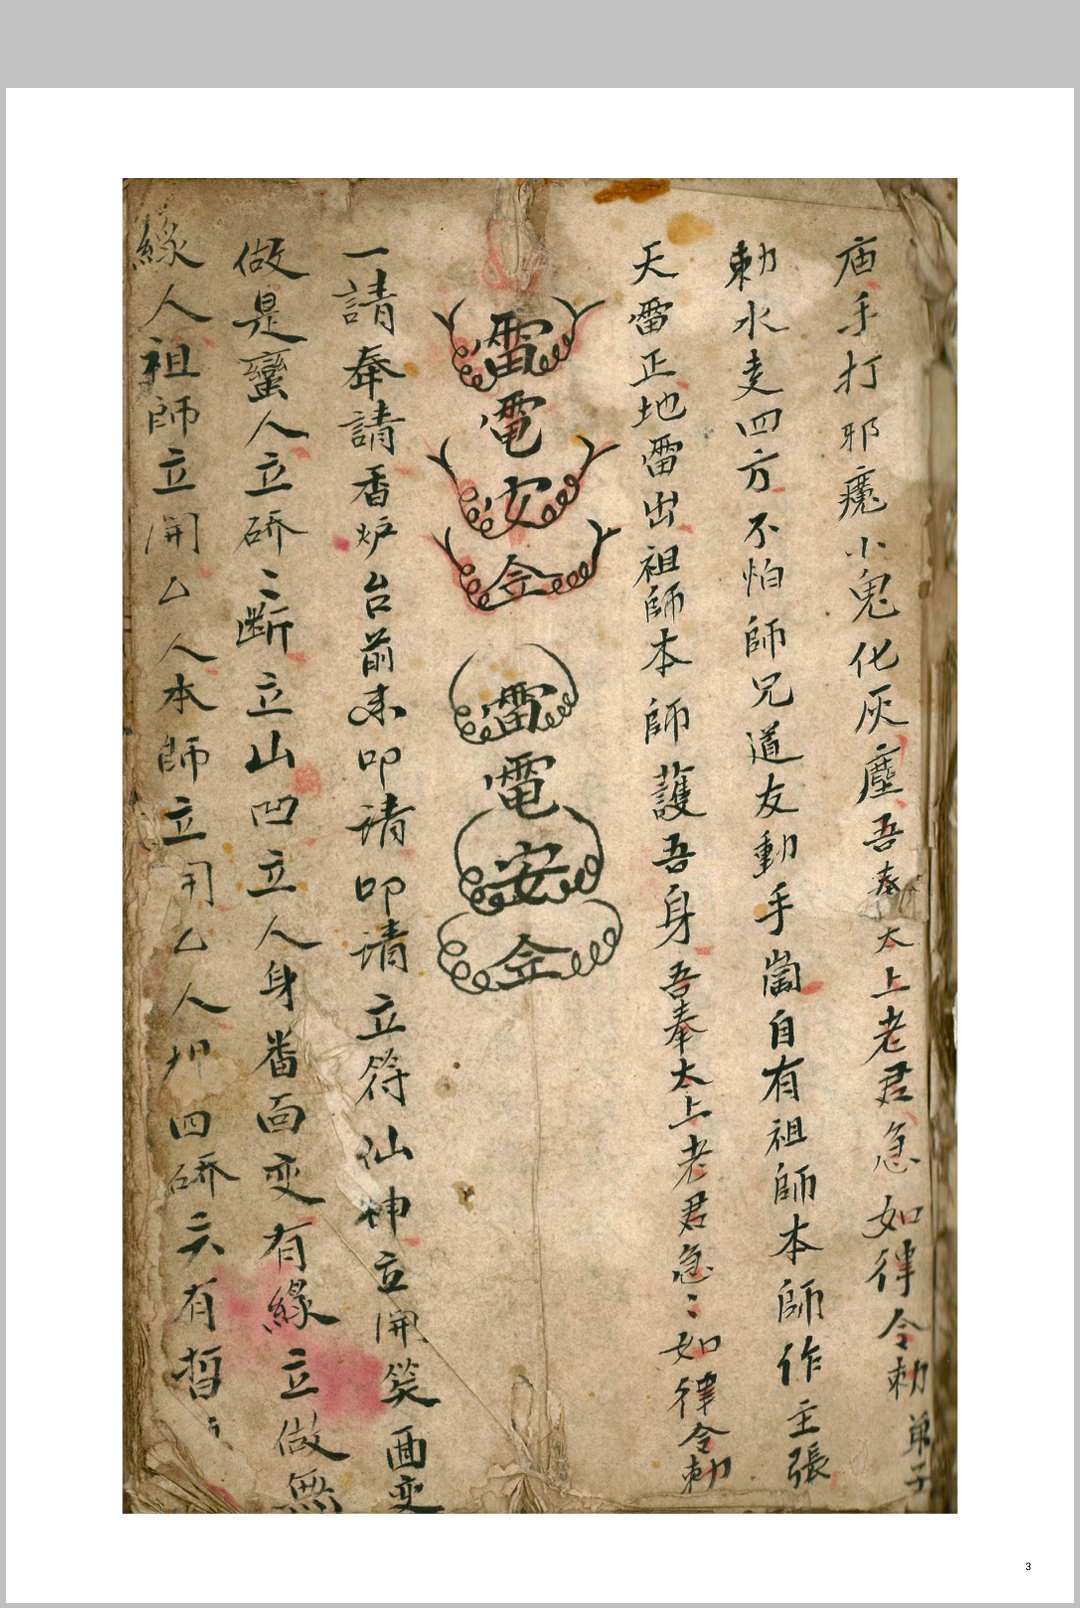 庙手打邪魔小鬼化灰塵吾奉太上老君急如律令勅 弟子
勅水走四方不怕師兄道友動手當自有祖師本師作主張
天雷正地雷出祖師本師護吾身吾奉太上老君急〻如律令勅
雷電安令
雷電安令
一請奉請香炉台前来叩请叩请立符仙神立開笑面变
做是蛮人立研〻断立山凹立人身番面变有緣立做無
緣人祖師立開乙人本師立開乙人押四研六有哲
3